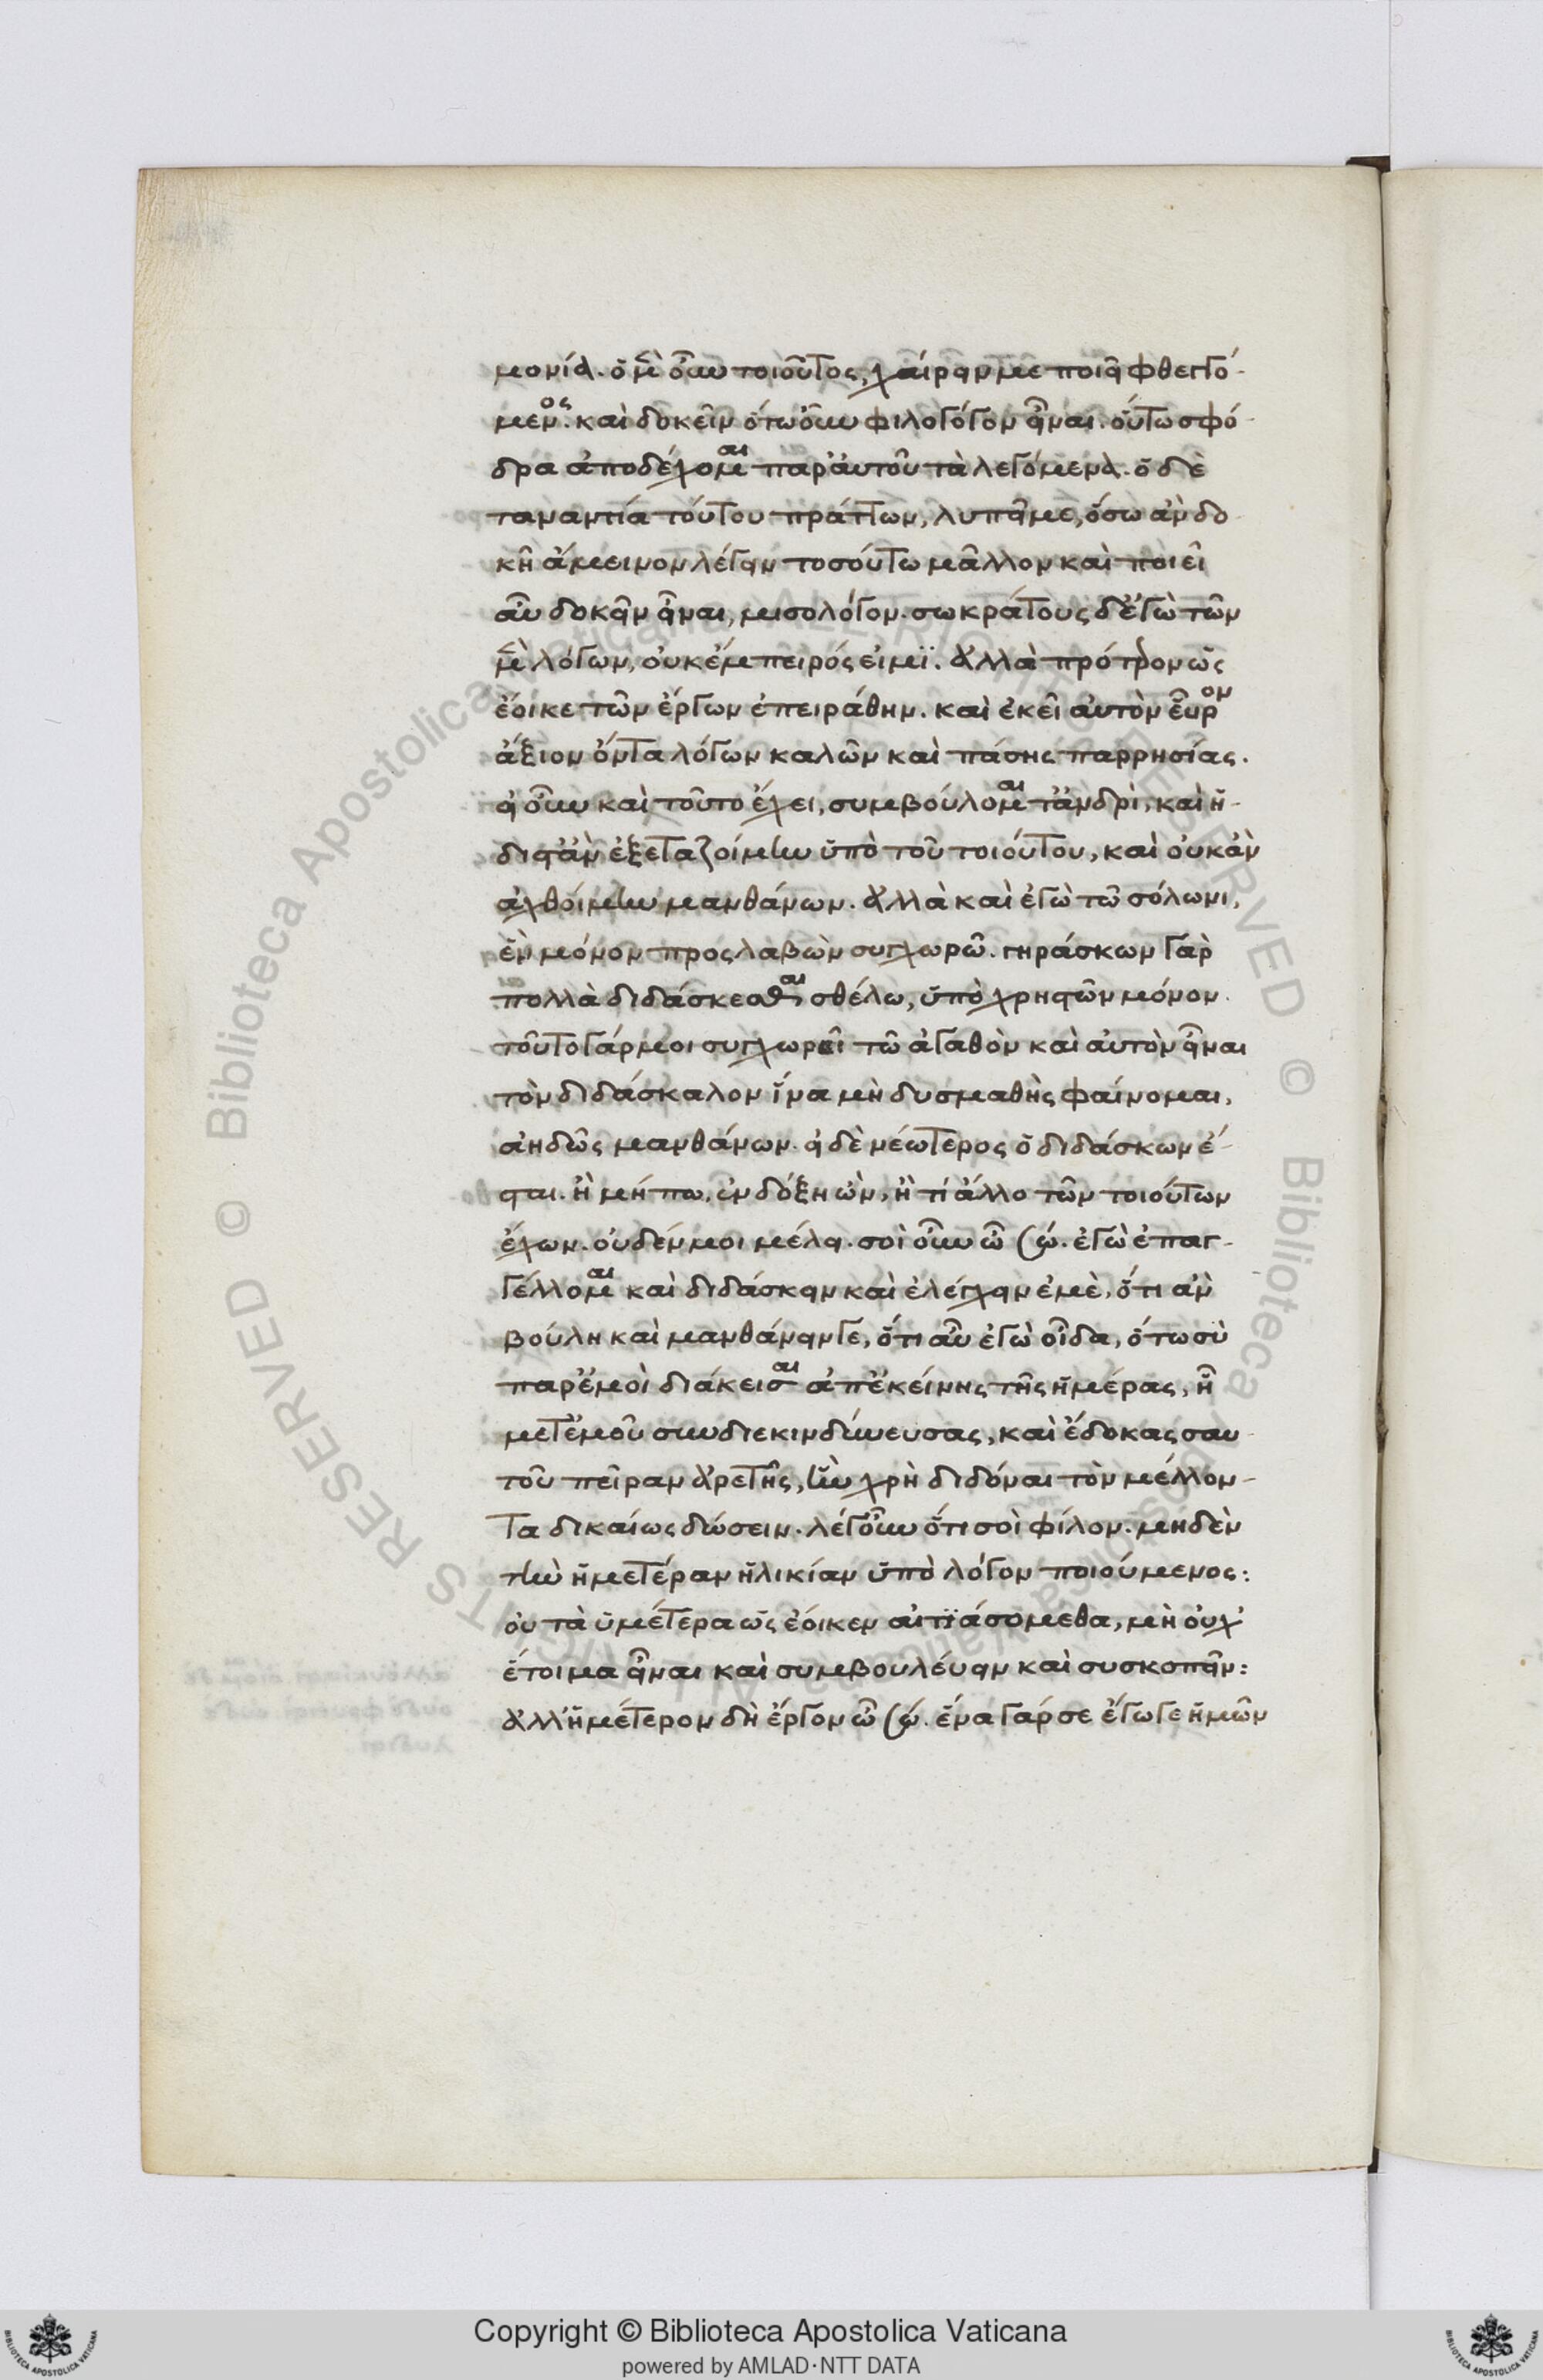 μονία. ὁ μὲν οὖν τοιοῦτος, χαίρειν με ποιεῖ φθεγγό-
μενος. καὶ δοκεῖν ὅτω οὖν φιλολόγον εἶναι. οὕτω σφό-
δρα ἀποδέχομαι παρ' αὐτοῦ τὰ λεγόμενα. ὁ δὲ
ταναντία τούτου πράττων, λυπεῖ με, ὅσω ἂν δο
κῆ ἄμεινον λέγειν τοσούτω μᾶλλον καὶ ποιεῖ
αὖ δοκεῖν εἶναι, μισολόγον. σωκράτους δ' ἐγὼ τῶν
μὲν λόγων, οὐκ ἔμπειρός εἰμϊ. ἀλλὰ πρότερον ὡς
ἔοικε τῶν ἔργων ἐπειράθην. καὶ ἐκεῖ αὐτὸν εὗρον
ἄξιον ὄντα λόγων καλῶν καὶ πάσης παρρησίας.
εἰ οὖν καὶ τοῦτο ἔχει, συμβούλομαι τἀνδρὶ, καὶ ἥ-
διστ' ἂν ἐξεταζοίμην ὑπὸ τοῦ τοιούτου, καὶ οὐκ ἂν
ἀχθοίμην μανθάνων. ἀλλὰ καὶ ἐγὼ τῶ σόλωνι,
ἓν μόνον προσλαβὼν συγχωρῶ. γηράσκων γὰρ
πολλὰ διδάσκεσθαι σθέλω, ὑπὸ χρηστῶν μόνον.
τοῦτο γάρ μοι συγχωρεῖ τῶ ἀγαθὸν καὶ αὐτὸν εἶναι
τὸν διδάσκαλον ἵνα μὴ δυσμαθὴς φαίνομαι,
ἀηδῶς μανθάνων. εἰ δὲ νέωτερος ὁ διδάσκων ἔ-
σται. ἢ μήπω ἐν δόξη ὢν, ἢ τί ἄλλο τῶν τοιούτων
ἔχων. οὐδέν μοι μέλει. σοὶ οὖν ὦ σώ. ἐγὼ ἐπαγ-
γέλλομαι καὶ διδάσκειν καὶ ἐλέγχειν ἐμὲ, ὅτι ἂν
βούλη καὶ μανθάνειν γε, ὅτι αὖ ἐγὼ οἶδα, ὅτω σὺ
παρ' ἐμοὶ διάκεισαι ἀπ' ἐκείνης τῆς ἡμέρας, ἧ
μετ' ἐμοῦ συνδιεκινδύνευσας, καὶ ἔδοκας σαυ
τοῦ πεῖραν ἀρετῆς, ἣν χρὴ διδόναι τὸν μέλλον-
τα δικαίως δώσειν. λέγ' οὖν ὅτι σοὶ φίλον. μηδὲν
τὴν ἡμετέραν ἡλικίαν ὑπὸ λόγον ποιούμενος:
οὐ τὰ ὑμέτερα ὡς ἔοικεν αἰτϊάσομεθα, μὴ οὐχ'
ἕτοιμα εἶναι καὶ συμβουλέυειν καὶ συσκοπεῖν:
ἀλλ' ἡμέτερον δὴ ἔργον ὦ σώ. ἕνα γάρ σε ἔγωγε ἡμῶν